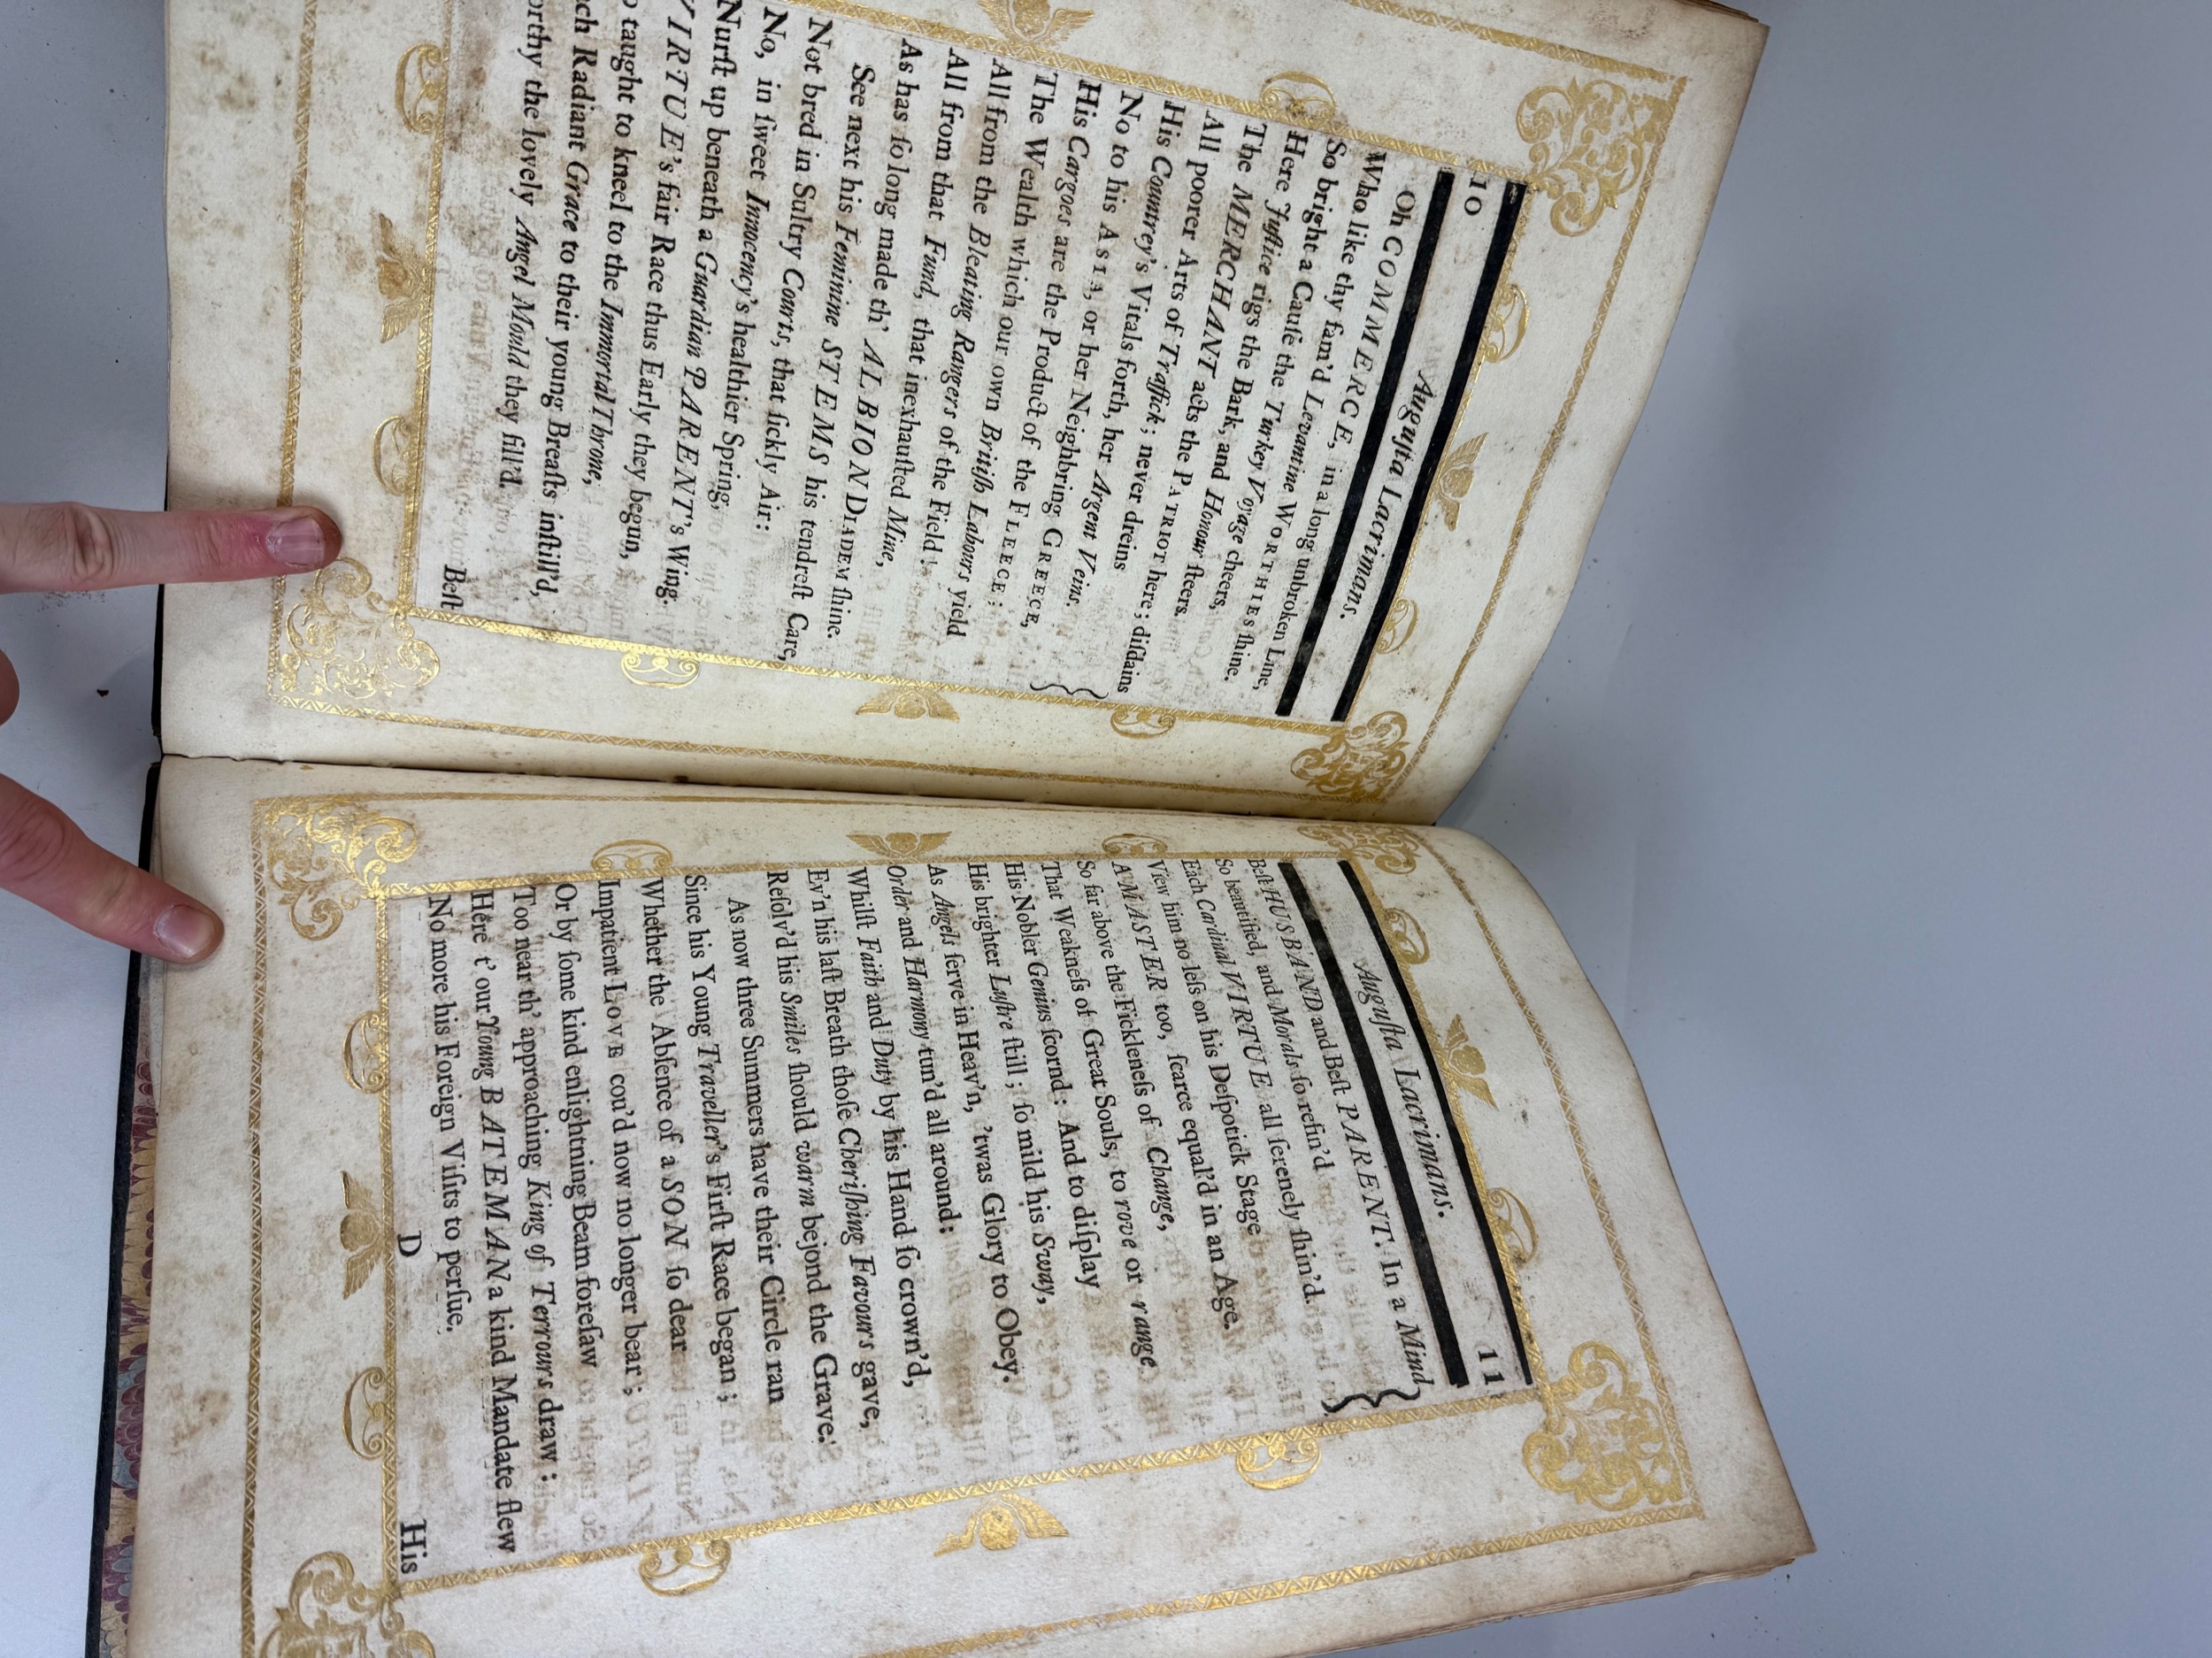 10
Auguſta Lacrimans.
Oh COMMERCE, in a long unbroken Line,
Who like thy fam'd Levantine WORTHIES ſhine.
So bright a Cauſe the Turkey Voyage cheers,
Here Juſtice rigs the Bark, and Honour ſteers.
The MERCHANT acts the PATRIOT here; diſdains
All poorer Arts of Traffick; never dreins
His Countrey's Vitals forth, her Argent Veins.
No to his ASIA, or her Neighbring GREECE,
His Cargoes are the Product of the FLEECE:
The Wealth which our own Britiſh Labours yield
All from the Bleating Rangers of the Field!
All from that Fund, that inexhauſted Mine,
As has ſo long made th' ALBION DIADEM ſhine.
See next his Feminine STEMS his tendreſt Care,
Not bred in Sultry Courts, that ſickly Air:
No, in ſweet Innocency's healthier Spring,
Nurſt up beneath a Guardian PARENT's Wing.
VIRTUE's fair Race thus Early they begun,
taught to kneel to the Immortal Throne,
Radiant Grace to their young Breaſts inſtill'd,
the lovely Angel Mould they fill'd.
Beſt
11
Auguſta Lacrimans.
Beſt HUSBAND and Beſt PARENT. In a Mind
So beautified, and Morals ſo refin'd
Each Cardinal VIRTUE all ſerenely ſhin'd.
View him no leſs on his Deſpotick Stage
A MASTER too, ſcarce equal'd in an Age.
So far above the Fickleneſs of Change,
That Weakneſs of Great Souls, to rove or range
His Nobler Genius ſcornd: And to diſplay
His brighter Luſtre ſtill; ſo mild his Sway,
As Angels ſerve in Heav'n, 'twas Glory to Obey.
Order and Harmony tun'd all around:
Whilſt Faith and Duty by his Hand ſo crown'd,
Ev'n his laſt Breath thoſe Cheriſhing Favours gave,
Reſolv'd his Smiles ſhould warm bejond the Grave.
As now three Summers have their Circle ran
Since his Young Traveller's Firſt Race began;
Whether the Abſence of a SON ſo dear
Impatient LOVE cou'd now no longer bear;
Or by ſome kind enlightning Beam foreſaw
Too near th' approaching King of Terrours draw:
Here t' our Young BATEMAN a kind Mandate flew
No more his Foreign Viſits to perſue.
D
His